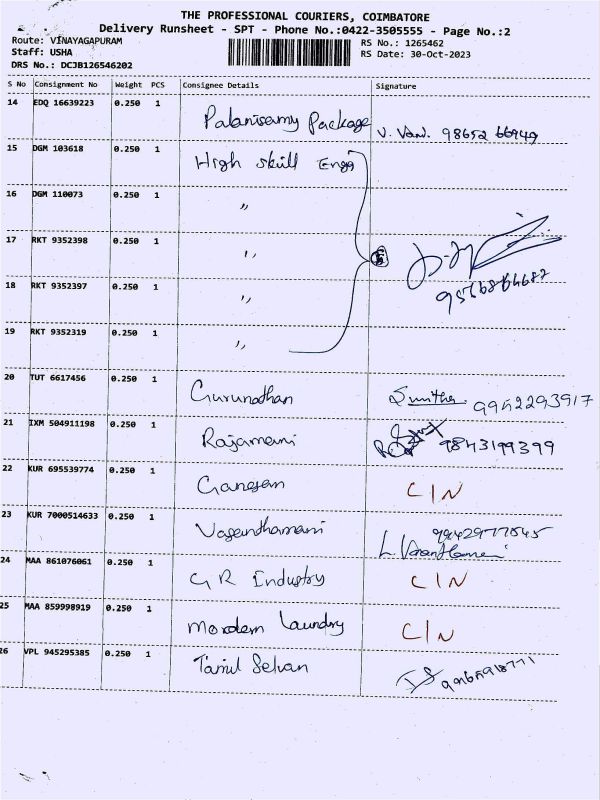 THE PROFESSIONAL COURIERS, COIMBATORE
Delivery Runsheet - SPT - Phone No.:0422-3505555 - Page No.:2
Route: VINAYAGAPURAM RS No.: 1265462
Staff: USHA RS Date: 30-Oct-2023
DRS No.: DCJB126546202
S No Consignment No Weight PCS Consignee Details Signature
14 EDQ 16639223 0.250 1 Palanisamy Package V. Van. 98652 66949
15 DGM 103618 0.250 1 High skill Engg
16 DGM 110073 0.250 1 〃
17 RKT 9352398 0.250 1 〃
18 RKT 9352397 0.250 1 〃
19 RKT 9352319 0.250 1 〃
20 TUT 6617456 0.250 1 Gurunathan Sunitha 9952293917
21 IXM 504911198 0.250 1 Rajamani 9843199399
22 KUR 695539774 0.250 1 Ganesan C/N
23 KUR 7000514633 0.250 1 Vasanthamani 9942977845
24 MAA 861076061 0.250 1 G R Industry C/N
25 MAA 859998919 0.250 1 mordern Laundry C/N
26 VPL 945295385 0.250 1 Tamil Selvan